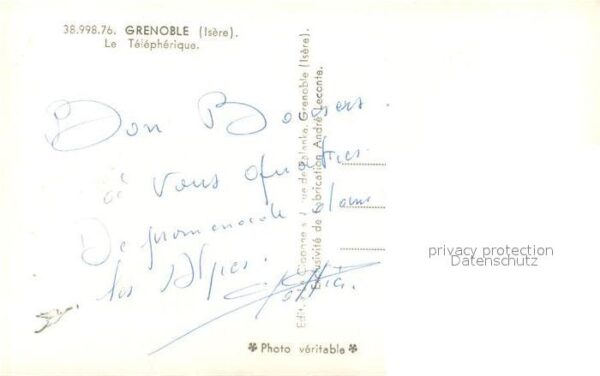 38.998.76. GRENOBLE (Isère).
Le Téléphérique.
Bon Baisers
à vous quatres
De promenade dans
les Alpes.
Edit. rue de Grenoble (Isère).
Exclusivité de Fabrication André Leconte.
✽ Photo véritable ✽
privacy protection
Datenschutz